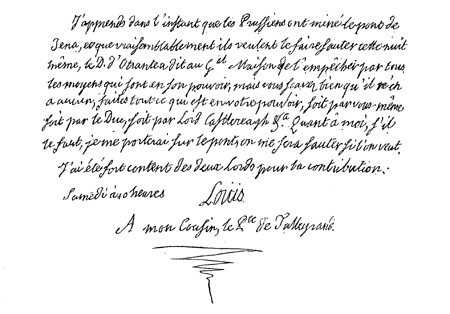 J'apprends dans l'instant que les Prussiens ont miné le pont de
Jena, et que vraisemblablement ils veulent le faire sauter cette nuit
même, le D. d'Otrante a dit au Gal Maison de l'empêcher par tous
les moyens qui sont en son pouvoir, mais vous sçavez bien qu'il n'en
a aucun, faites tout ce qui est en votre pouvoir, soit par vous-même
soit par le Duc, soit par Lord Castlereagh &ca Quant à moi, s'il
le faut, je me porterai sur le pont, on me fera sauter si l'on veut.
J'ai été fort content des deux Lords pour la contribution.
Samedi à 10 heures Louis
A mon Cousin, le Pce de Talleyrand.